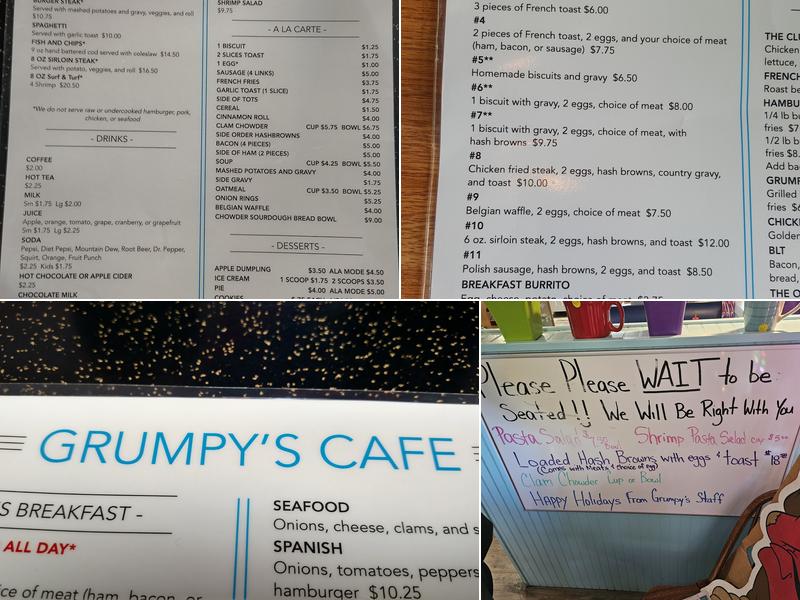 BURGER STEAK*
Served with mashed potatoes and gravy, veggies, and roll
$10.75
SPAGHETTI
Served with garlic toast $10.00
FISH AND CHIPS*
9 oz hand battered cod served with coleslaw $14.50
8 OZ SIRLOIN STEAK*
Served with potato, veggies, and roll $16.50
8 OZ Surf & Turf*
4 Shrimp $20.50
*We do not serve raw or undercooked hamburger, pork,
chicken, or seafood
- DRINKS -
COFFEE
$2.00
HOT TEA
$2.25
MILK
Sm $1.75 Lg $2.00
JUICE
Apple, orange, tomato, grape, cranberry, or grapefruit
Sm $1.75 Lg $2.25
SODA
Pepsi, Diet Pepsi, Mountain Dew, Root Beer, Dr. Pepper,
Squirt, Orange, Fruit Punch
$2.25 Kids $1.75
HOT CHOCOLATE OR APPLE CIDER
$2.25
CHOCOLATE MILK
SHRIMP SALAD
$9.75
- A LA CARTE -
1 BISCUIT $1.25
2 SLICES TOAST $1.75
1 EGG* $1.00
SAUSAGE (4 LINKS) $5.00
FRENCH FRIES $3.75
GARLIC TOAST (1 SLICE) $1.75
SIDE OF TOTS $4.75
CEREAL $1.50
CINNAMON ROLL $4.00
CLAM CHOWDER CUP $5.75 BOWL $6.75
SIDE ORDER HASHBROWNS $4.00
BACON (4 PIECES) $5.00
SIDE OF HAM (2 PIECES) $5.00
SOUP CUP $4.25 BOWL $5.50
MASHED POTATOES AND GRAVY $4.00
SIDE GRAVY $1.75
OATMEAL CUP $3.50 BOWL $5.25
ONION RINGS $5.25
BELGIAN WAFFLE $4.00
CHOWDER SOURDOUGH BREAD BOWL $9.00
- DESSERTS -
APPLE DUMPLING $3.50 ALA MODE $4.50
ICE CREAM 1 SCOOP $1.75 2 SCOOPS $3.50
PIE $4.00 ALA MODE $5.00
COOKIES
3 pieces of French toast $6.00
#4
2 pieces of French toast, 2 eggs, and your choice of meat
(ham, bacon, or sausage) $7.75
#5**
Homemade biscuits and gravy $6.50
#6**
1 biscuit with gravy, 2 eggs, choice of meat $8.00
#7**
1 biscuit with gravy, 2 eggs, choice of meat, with
hash browns $9.75
#8
Chicken fried steak, 2 eggs, hash browns, country gravy,
and toast $10.00
#9
Belgian waffle, 2 eggs, choice of meat $7.50
#10
6 oz. sirloin steak, 2 eggs, hash browns, and toast $12.00
#11
Polish sausage, hash browns, 2 eggs, and toast $8.50
BREAKFAST BURRITO
Egg, cheese, potato, choice of meat
THE CLU
Chicken
lettuce,
FRENCH
Roast be
HAMBU
1/4 lb bu
fries $7
1/2 lb b
fries $8.
Add ba
GRUMP
Grilled
fries $6
CHICK
Golden
BLT
Bacon,
bread,
THE O
GRUMPY'S CAFE
S BREAKFAST -
ALL DAY*
ice of meat (ham, bacon, or
SEAFOOD
Onions, cheese, clams, and s
SPANISH
Onions, tomatoes, peppers
hamburger $10.25
Please Please WAIT to be
Seated!! We Will Be Right With You
Pasta Salad Bowl Shrimp Pasta Salad cup
Loaded Hash Browns with eggs & toast
(Comes with Meats & choice of egg)
Clam Chowder Cup or Bowl
Happy Holidays From Grumpy's Staff